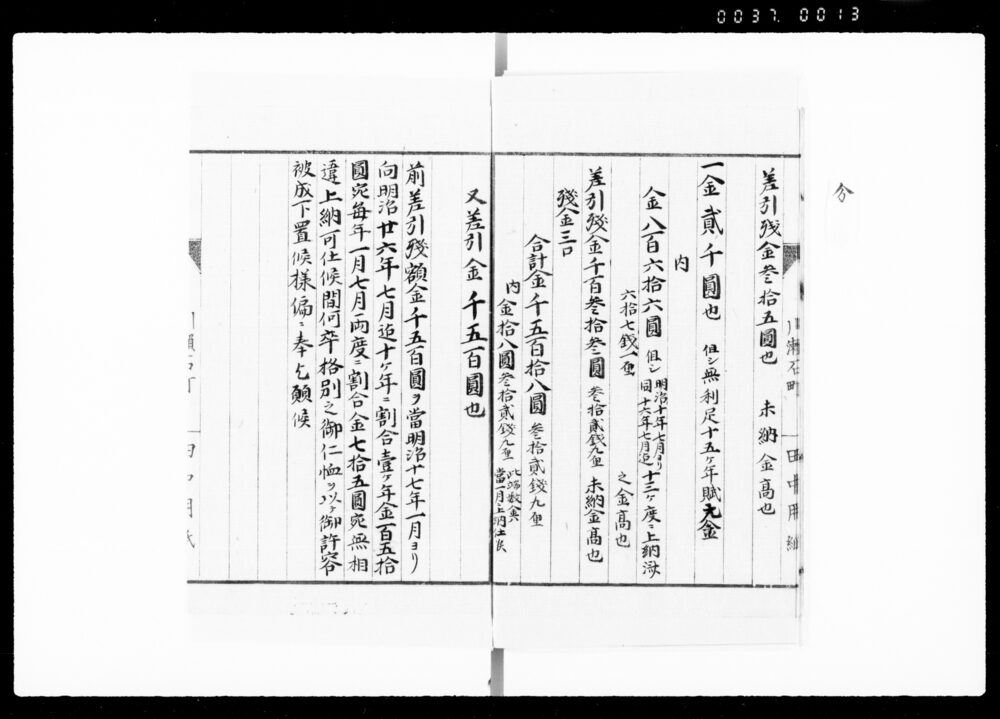 0037. 0013
分
差引残金叄拾五圓也 未納金高也
一金貳千圓也 但シ無利足十五ヶ年賦元金
内
金八百六拾六圓 但シ明治十年七月ヨリ同十六年七月迠十三ヶ度ニ上納済
六拾七銭一厘 之金高也
差引残金千百叄拾叄圓 叄拾貳銭九厘 未納金高也
残金三口
合計金千五百拾八圓 叄拾貳銭九厘
内金拾八圓叄拾貳銭九厘 此端数金ハ當一月上納仕候
又差引金千五百圓也
前差引残額金千五百圓ヲ當明治十七年一月ヨリ
向明治廿六年七月迠十ヶ年ニ割合壹ヶ年金百五拾
圓宛毎年一月七月両度ニ割合金七拾五圓宛無相
違上納可仕候間何卒格別之御仁恤ヲ以テ御許容
被成下置候様偏ニ奉乞願候